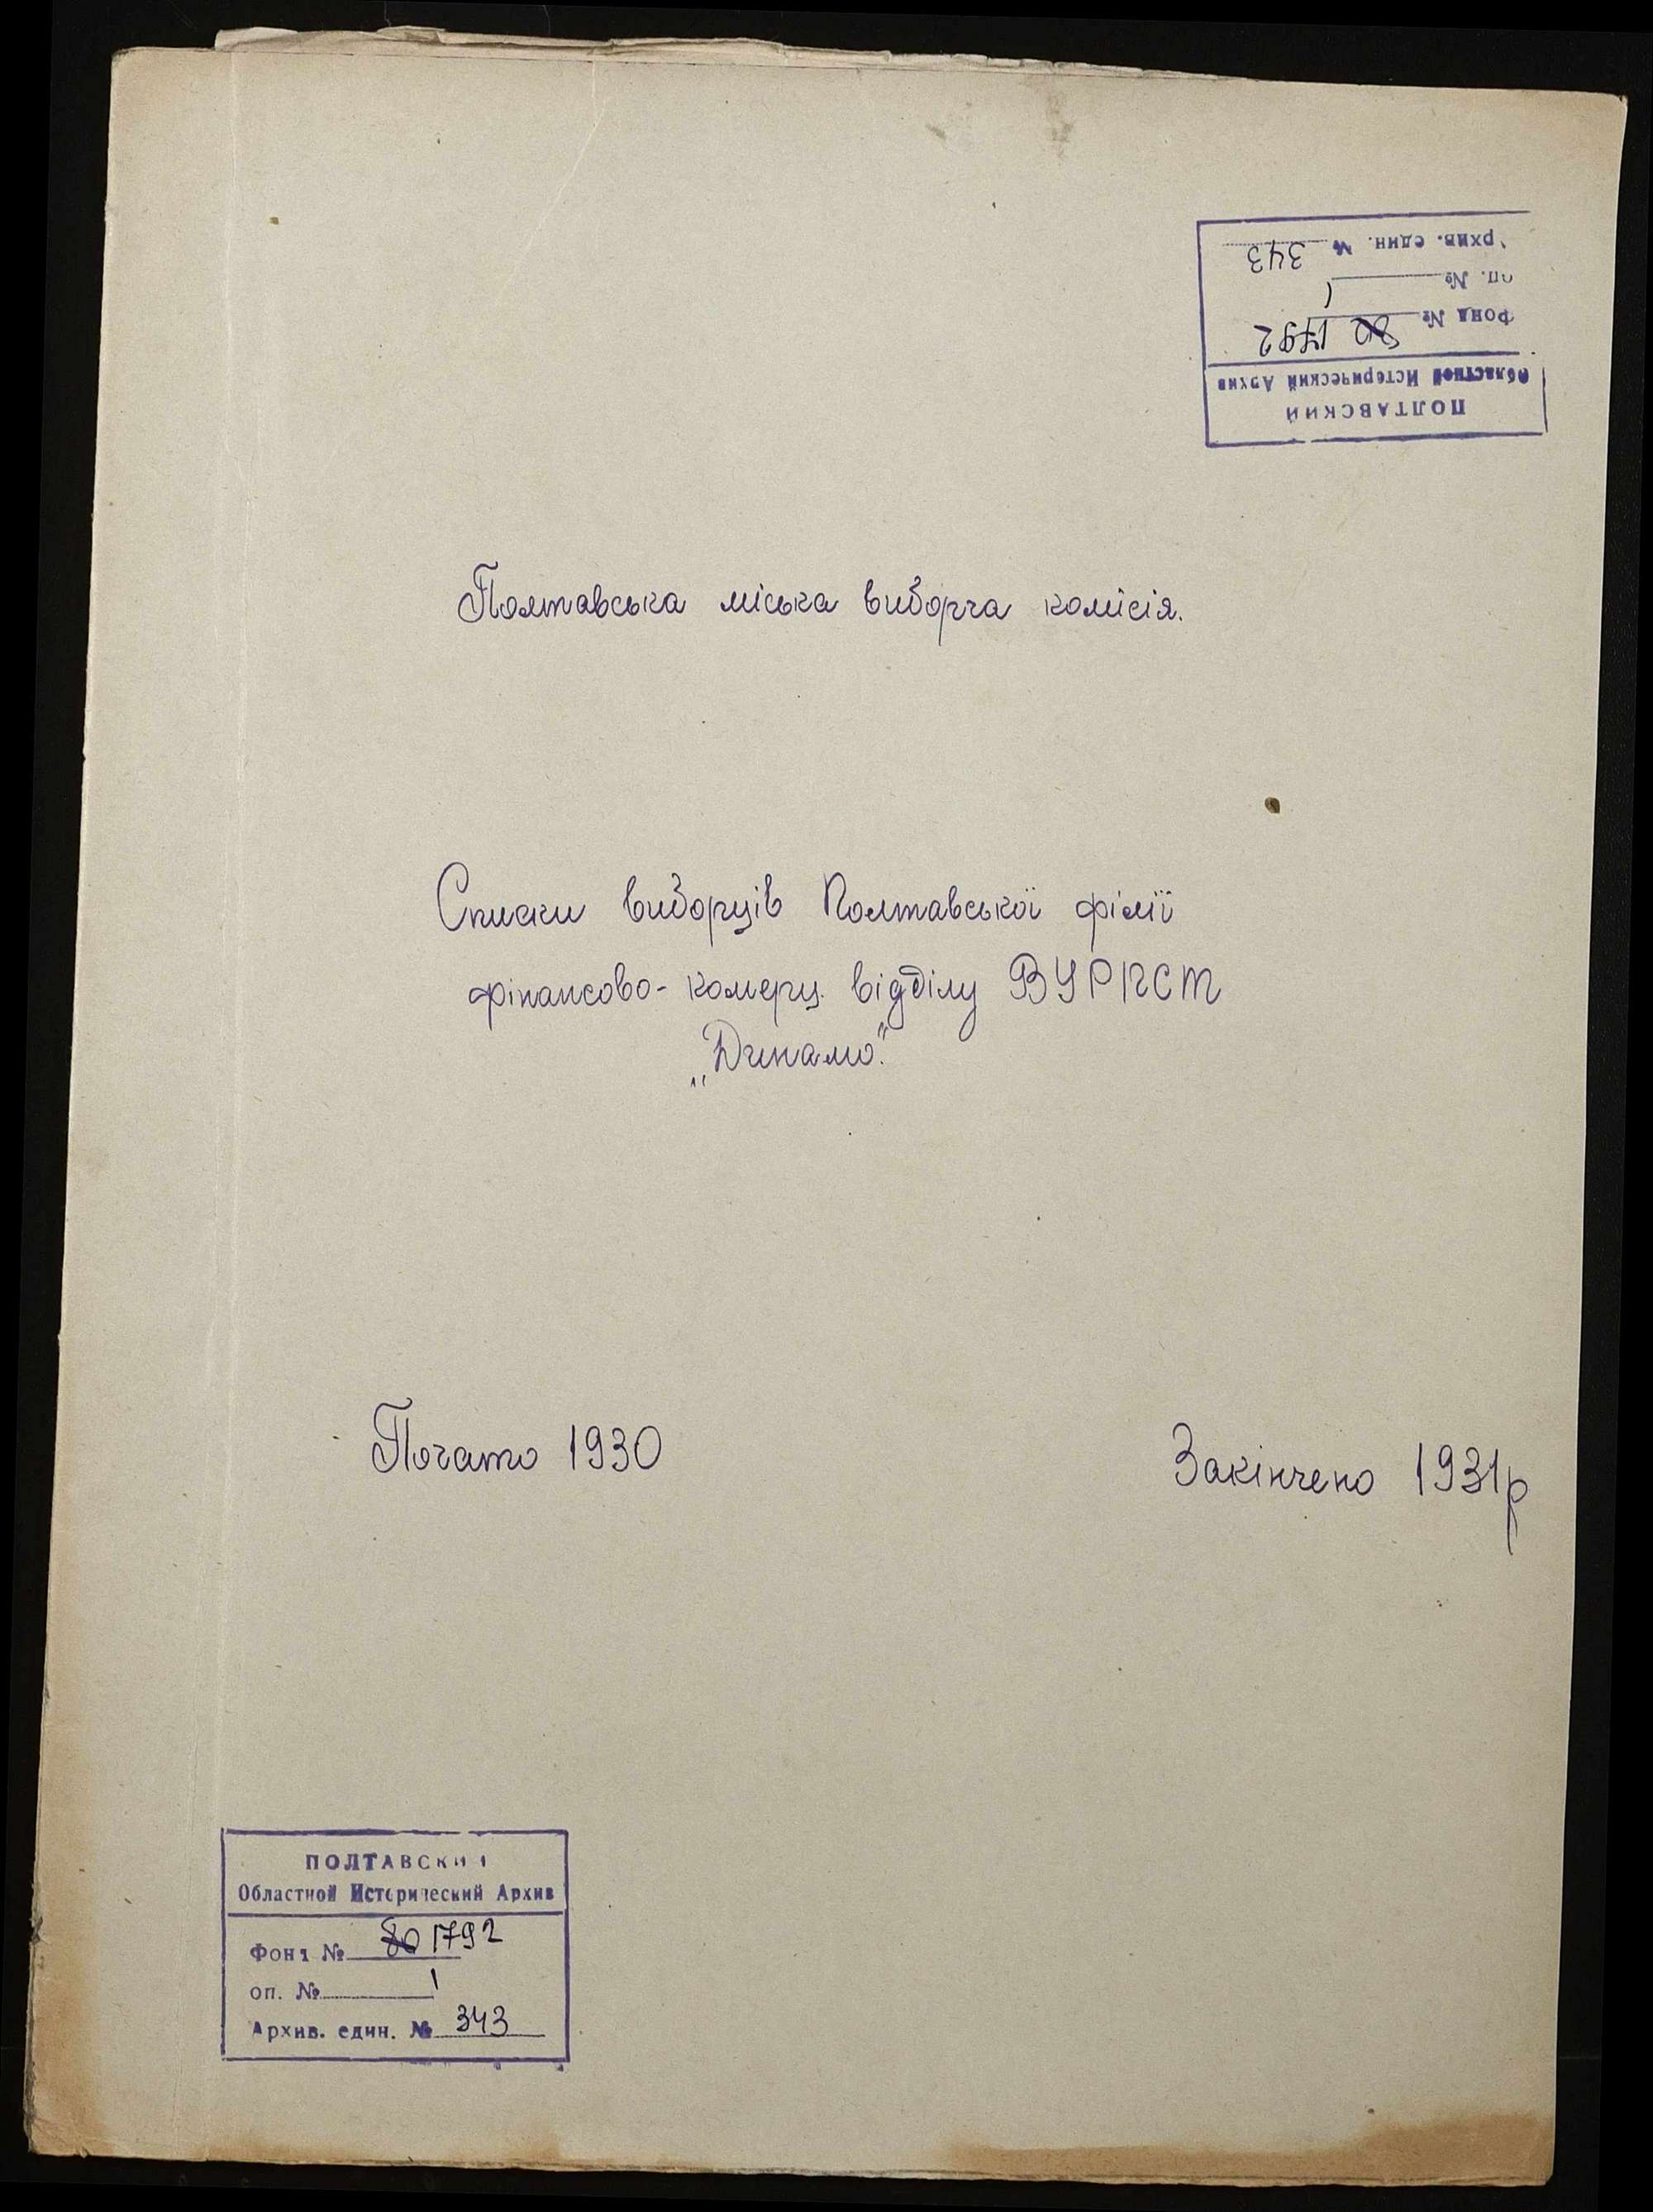 Архив. един. № 343
оп. № 1
Фонд № 80 1792
Областной Исторический Архив
ПОЛТАВСКИЙ
Полтавська міська виборча комісія.
Списки виборців Полтавської філії
фінансово-комерц. відділу ВУРПСТ
„Динамо".
Почато 1930
Закінчено 1931р
ПОЛТАВСКИЙ
Областной Исторический Архив
Фонд № 80 1792
оп. № 1
Архив. един. № 343